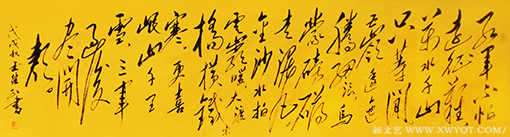 红軍不怕
遠征難
萬水千山
只等闲
五嶺逶迤
腾细浪乌
蒙磅礴
走泥丸
金沙水拍
雲崖暖大渡
橋横鐵索
寒更喜
岷山千里
雪三軍
過後
盡開
颜
戊戌秋
新文艺 www.XWYQT.com